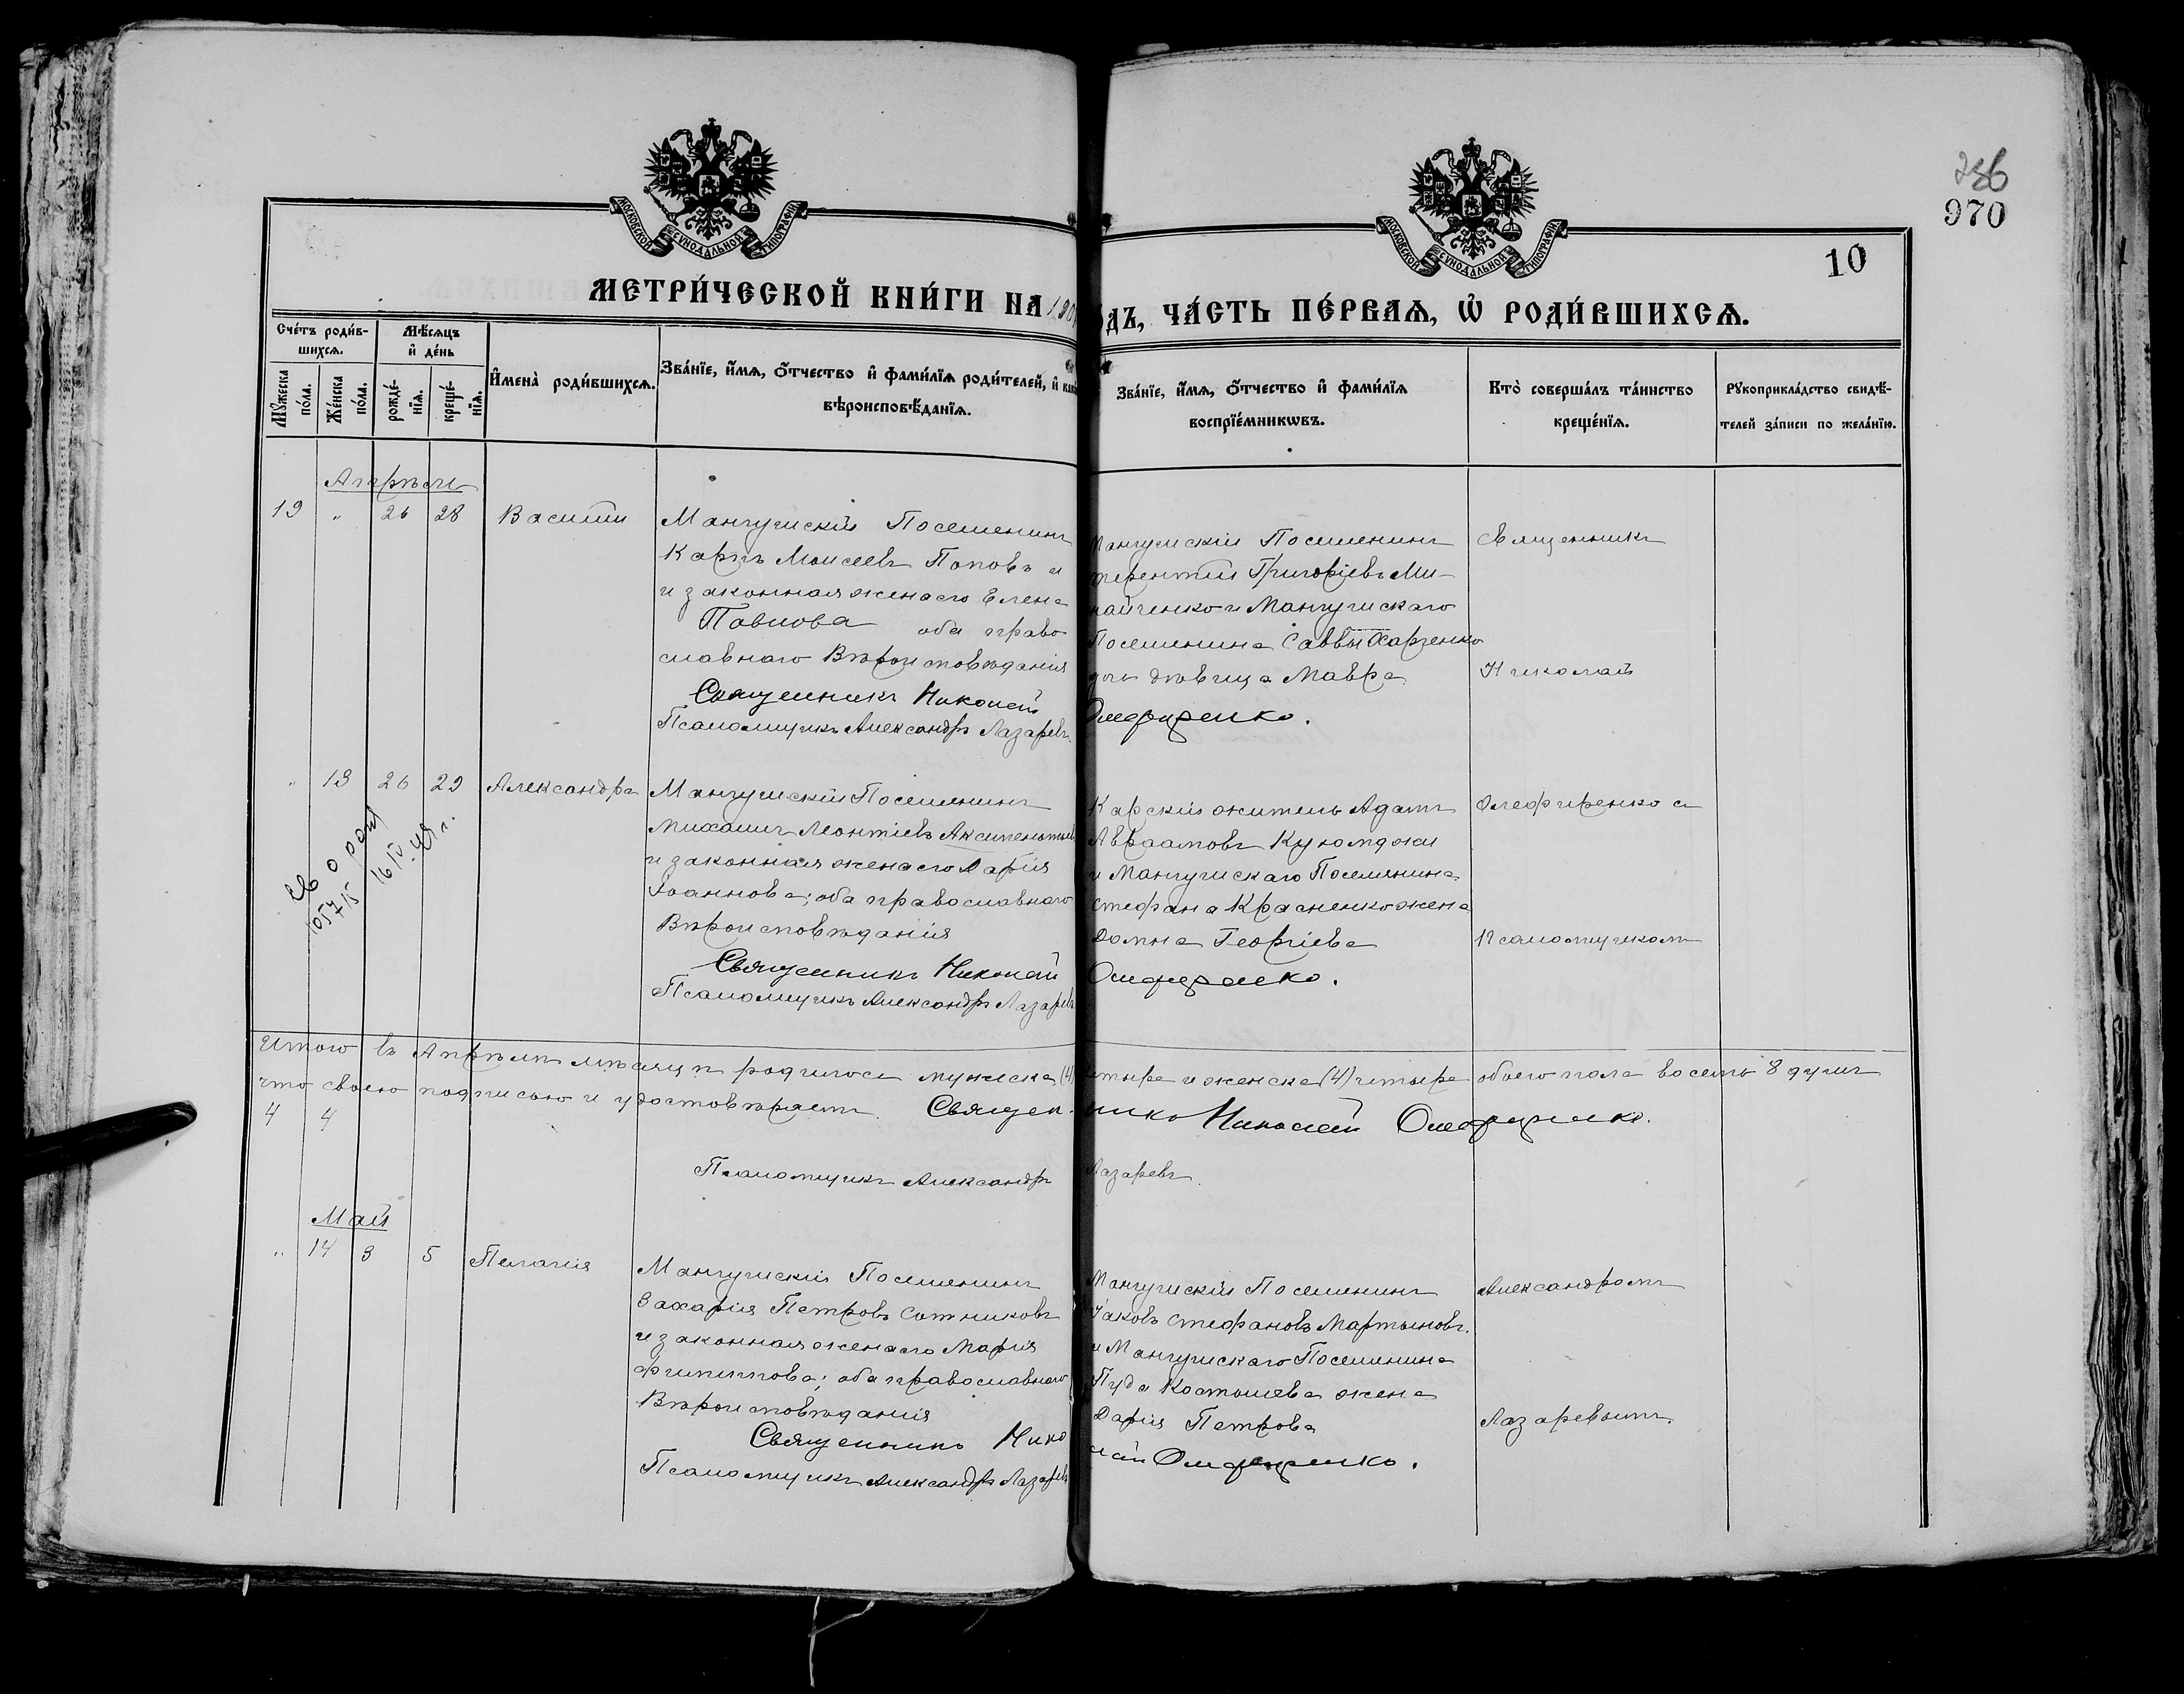 286
970
10
МОСКОВСКОЙ СѴНОДАЛЬНОЙ ТИПОГРАФІИ
МОСКОВСКОЙ СѴНОДАЛЬНОЙ ТИПОГРАФІИ
МЕТРИ́ЧЕСКОЙ КНИ́ГИ НА 190
ОДЪ, ЧА́СТЬ ПЕ́РВАѦ, Ѡ҆ РОДИ́ВШИХСѦ.
Сче́тъ роди́в-
шихсѧ.
Мꙋжеска по́ла.
Же́нска по́ла.
Мѣ́сѧцъ
и҆ де́нь
рожде́-
нїѧ.
креще́-
нїѧ.
И҆мена̀ роди́вшихсѧ.
Зва́нїе, и҆́мѧ, ѻ҆́тчество и҆ фами́лїѧ роди́телей, и҆ как
вѣроисповѣ́данїѧ.
Зва́нїе, и҆́мѧ, ѻ҆́тчество и҆ фами́лїѧ
воспрїе́мникѡвъ.
Кто̀ соверша́лъ та́инство
креще́нїѧ.
Рꙋкоприкла́дство свидѣ́-
телей за́писи по жела́нїю.
Апрѣль
19 " 26 28 Василій
Мангушскій Поселенинъ
Карпъ Моисеевъ Поповъ и
и законная жена его Елена
Павлова оба право
славнаго Вѣроисповѣданія
Священникъ Николай
Псаломщикъ Александръ Лазаревъ.
Мангушскій Поселенинъ
Терентій Григоріевъ Ми-
найченко и Мангушскаго
Поселенина Саввы Харченко
дочь дѣвица Мавра
Олефиренко.
Священникъ
Николай
" 13 26 29 Александра
Св о рожд
105715 16/IV-48 г.
Мангушскій Поселенинъ
Михаилъ Леонтіевъ Аксиентьев
и законная жена его Дарія
Іоаннова; оба православнаго
Вѣроисповѣданія
Священникъ Николай
Псаломщикъ Александръ Лазаревъ
Карскій житель Адамъ
Авраамовъ Куюмджи
и Мангушскаго Поселянина
Стефана Красненко жена
Домна Георгіева
Олефиренко.
Олефиренко съ
Псаломщикомъ
Итого въ Апрѣлѣ мѣсяцѣ родилось мужеска (4) четыре и женска (4) четыре обоего пола восемь 8 душъ
что своею подписью и удостовѣряемъ. Священникъ Николай Олефиренко.
4 4
Псаломщикъ Александръ Лазаревъ.
Май
" 14 3 5 Пелагія
Мангушскій Поселенинъ
Захарія Петровъ Сотниковъ
и законная жена его Марія
Филиппова; оба православнаго
Вѣроисповѣданія
Священникъ Нико
лай Олефиренко.
Псаломщикъ Александръ Лазаревъ
Мангушскій Поселенинъ
Іаковъ Стефановъ Мартыновъ.
и Мангушскаго Поселенина
Пуда Костылева жена
Дарія Петрова
Александромъ
Лазаревымъ.